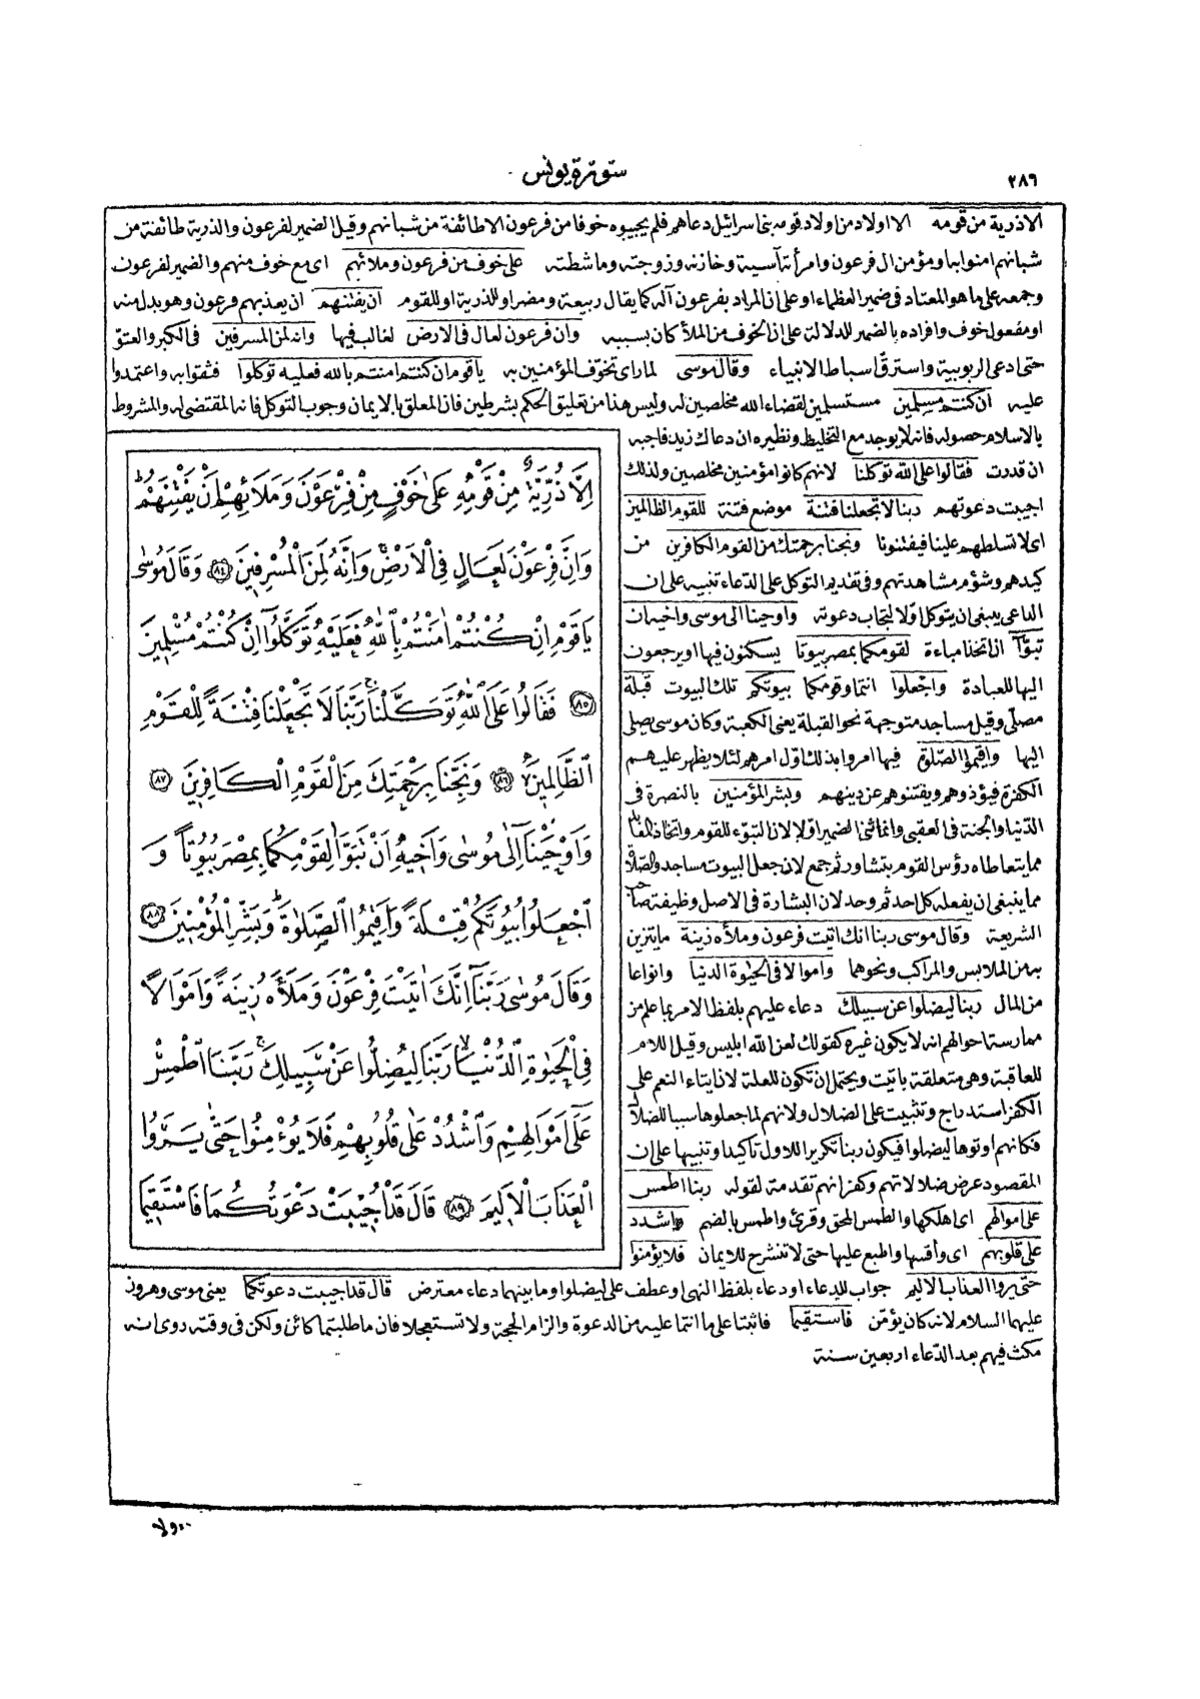 ٢٨٦
سورة يونس
الاذرية من قومه الا اولاد من اولاد قومه بنى اسرائيل دعاهم فلم يجيبوه خوفا من فرعون الا طائفة من شبانهم وقيل الضمير لفرعون والذرية طائفة من
شبانهم امنوا به او مؤمن ال فرعون وامرأته آسية وخازنه وزوجته وماشطته على خوف من فرعون وملائهم اى مع خوف منهم والضمير لفرعون
وجمعه على ما هو المعتاد فى ضمير العظماء او على ان المراد بفرعون آله كما يقال ربيعة ومضر او للذرية او للقوم ان يفتنهم ان يعذبهم فرعون وهو بدل منه
او مفعول خوف وافراده بالضمير للدلالة على ان الخوف من الملأ كان بسببه وان فرعون لعال فى الارض لغالب فيها وانه لمن المسرفين فى الكبر والعتوّ
حتى ادعى الربوبية واسترقّ اسباط الانبياء وقال موسى لما راى تخوّف المؤمنين به ياقوم ان كنتم امنتم بالله فعليه توكلوا فثقوا به واعتمدوا
عليه ان كنتم مسلمين مستسلمين لقضاء الله مخلصين له وليس هذا من تعليق الحكم بشرطين فان المعلق بالايمان وجوب التوكل فانه المقتضى له والمشروط
بالاسلام حصوله فانه لا يوجد مع التخليط ونظيره ان دعاك زيد فاجبه
ان قدرت فقالوا على الله توكلنا لانهم كانوا مؤمنين مخلصين ولذلك
اجيبت دعوتهم ربنا لا تجعلنا فتنة موضع فتنة للقوم الظالمين
اى لا تسلطهم علينا فيفتنونا ونجنا برحمتك من القوم الكافرين من
كيدهم وشؤم مشاهدتهم وفى تقديم التوكل على الدعاء تنبيه على ان
الداعى ينبغى ان يتوكل اولا لتجاب دعوته واوحينا الى موسى واخيه ان
تبوّآ ان اتخذا مباءة لقومكما بمصر بيوتا يسكنون فيها او يرجعون
اليها للعبادة واجعلوا انتما وقومكما بيوتكم تلك البيوت قبلة
مصلّى وقيل مساجد متوجهة نحو القبلة يعنى الكعبة وكان موسى يصلى
اليها واقيموا الصلوة فيها امروا بذلك اول امرهم لئلا يظهر عليهم
الكفرة فيؤذوهم ويفتنوهم عن دينهم وبشر المؤمنين بالنصرة فى
الدنيا والجنة فى العقبى وانما ثنى الضمير اولا لان التبوّء للقوم واتخاذ المعابد
مما يتعاطاه رؤس القوم بتشاور ثم جمع لان جعل البيوت مساجد والصلاة
مما ينبغى ان يفعله كل احد ثم وحد لان البشارة فى الاصل وظيفة صاحب
الشريعة وقال موسى ربنا انك اتيت فرعون وملأه زينة ما يتزين
به من الملابس والمراكب ونحوهما واموالا فى الحيوة الدنيا وانواعا
من المال ربنا ليضلوا عن سبيلك دعاء عليهم بلفظ الامر بما علم من
ممارسة احوالهم انه لا يكون غيره كقولك لعن الله ابليس وقيل اللام
للعاقبة وهى متعلقة باتيت ويحتمل ان تكون للعلة لان ايتاء النعم على
الكفر استدراج وتثبيت على الضلال ولانهم لما جعلوها سببا للضلال
فكانهم اوتوها ليضلوا فيكون ربنا تكريرا للاول تأكيدا وتنبيها على ان
المقصود عرض ضلالاتهم وكفرانهم تقدمة لقوله ربنا اطمس
على اموالهم اى اهلكها والطمس المحق وقرئ واطمس بالضم واشدد
على قلوبهم اى وأقسها واطبع عليها حتى لا تنشرح للايمان فلا يؤمنوا
حتى يروا العذاب الاليم جواب للدعاء او دعاء بلفظ النهى او عطف على ليضلوا وما بينهما دعاء معترض قال قد اجيبت دعوتكما يعنى موسى وهرون
عليهما السلام لانه كان يؤمّن فاستقيما فاثبتا على ما انتما عليه من الدعوة والزام الحجة ولا تستعجلا فان ما طلبتما كائن ولكن فى وقته روى انه
مكث فيهم بعد الدّعاء اربعين سنة
اِلَّا ذُرِّيَّةٌ مِنْ قَوْمِهِ عَلٰى خَوْفٍ مِنْ فِرْعَوْنَ وَمَلَائِهِمْ اَنْ يَفْتِنَهُمْ
وَاِنَّ فِرْعَوْنَ لَعَالٍ فِى الْاَرْضِ وَاِنَّهُ لَمِنَ الْمُسْرِفِينَ ٨٤ وَقَالَ مُوسٰى
يَا قَوْمِ اِنْ كُنْتُمْ اٰمَنْتُمْ بِاللّٰهِ فَعَلَيْهِ تَوَكَّلُوٓا اِنْ كُنْتُمْ مُسْلِمِينَ
٨٥ فَقَالُوا عَلَى اللّٰهِ تَوَكَّلْنَا رَبَّنَا لَا تَجْعَلْنَا فِتْنَةً لِلْقَوْمِ
الظَّالِمِينَ ٨٦ وَنَجِّنَا بِرَحْمَتِكَ مِنَ الْقَوْمِ الْكَافِرِينَ ٨٧
وَاَوْحَيْنَٓا اِلٰى مُوسٰى وَاَخِيهِ اَنْ تَبَوَّاٰ لِقَوْمِكُمَا بِمِصْرَ بُيُوتًا وَ
اجْعَلُوا بُيُوتَكُمْ قِبْلَةً وَاَقِيمُوا الصَّلٰوةَ وَبَشِّرِ الْمُؤْمِنِينَ ٨٨
وَقَالَ مُوسٰى رَبَّنَٓا اِنَّكَ اٰتَيْتَ فِرْعَوْنَ وَمَلَاَهُ زِينَةً وَاَمْوَالًا
فِى الْحَيٰوةِ الدُّنْيَا رَبَّنَا لِيُضِلُّوا عَنْ سَبِيلِكَ رَبَّنَا اطْمِسْ
عَلٰٓى اَمْوَالِهِمْ وَاشْدُدْ عَلٰى قُلُوبِهِمْ فَلَا يُؤْمِنُوا حَتّٰى يَرَوُا
الْعَذَابَ الْاَلِيمَ ٨٩ قَالَ قَدْ اُجِيبَتْ دَعْوَتُكُمَا فَاسْتَقِيمَا
ولا